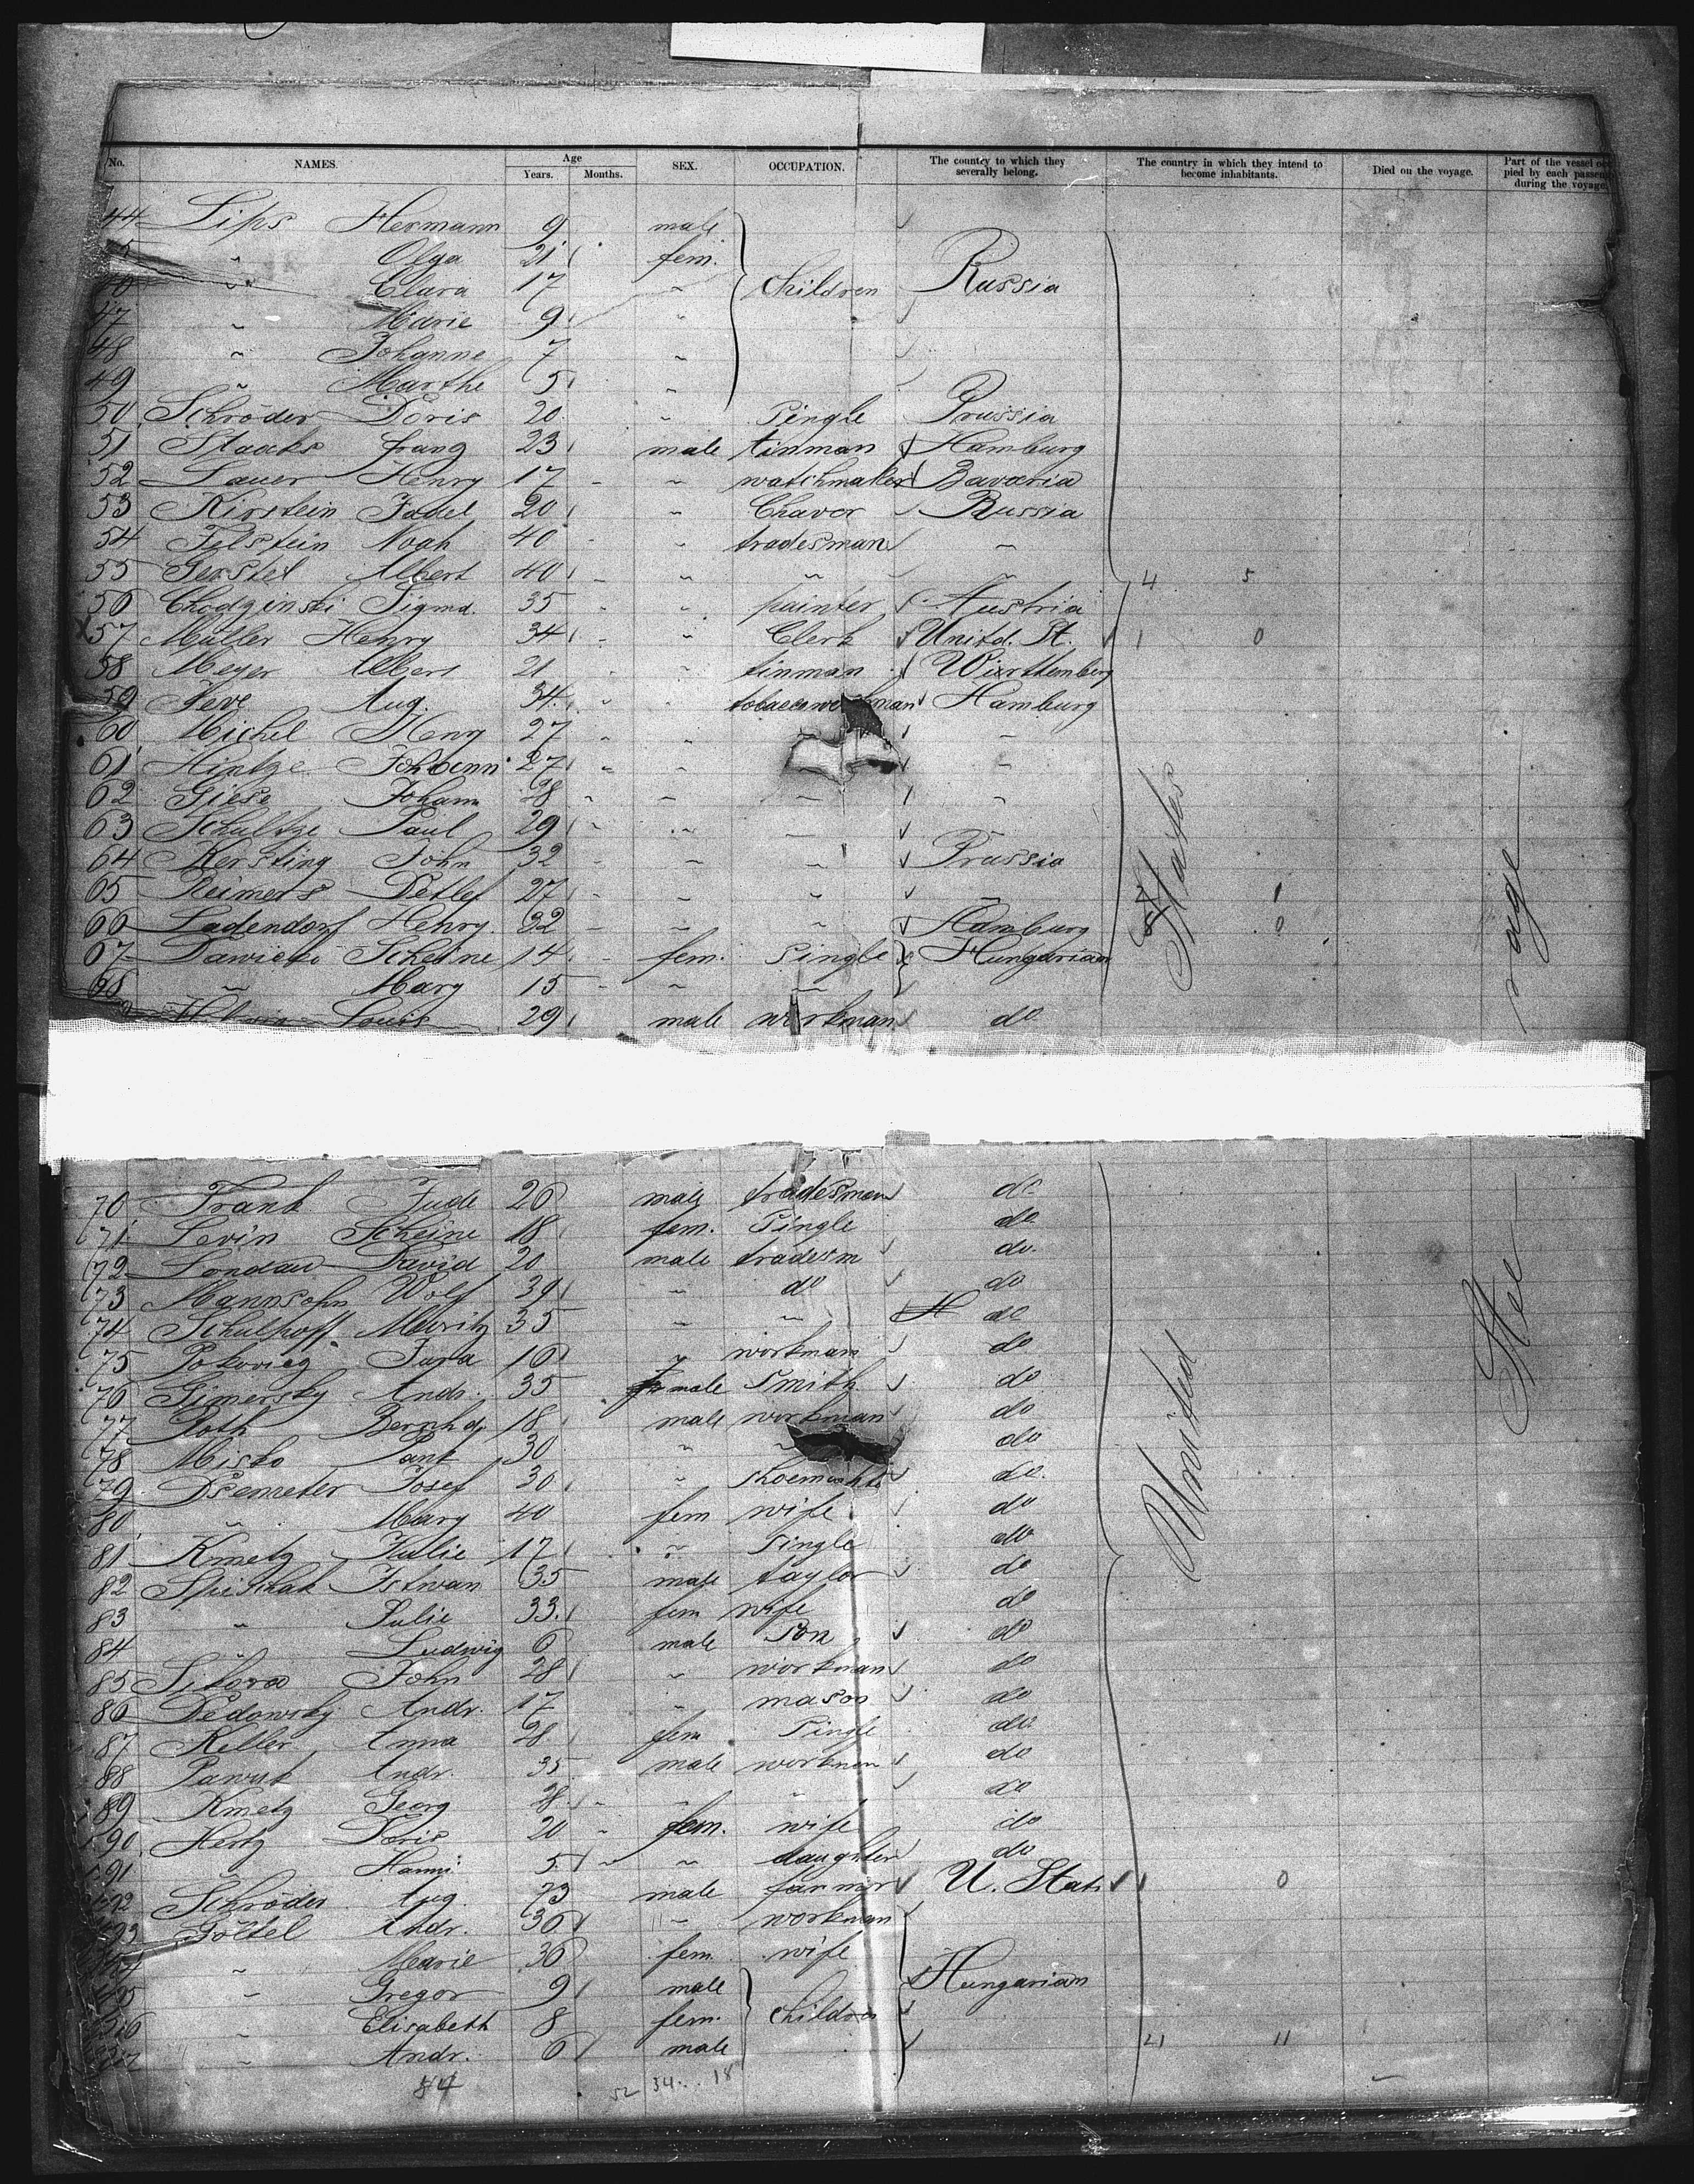 No. NAMES. Age Years. Months. SEX. OCCUPATION. The country to which they severally belong. The country in which they intend to become inhabitants. Died on the voyage. Part of the vessel occ pied by each passen during the voyage.
44 Lips Hermann 9 male
" Olga 21 fem.
" Clara 17 " children Russia
47 " Marie 9 "
48 " Johanne 7 "
49 " Marthe 5 "
50 Schröder Doris 20 " Single Prussia
51 Staacks franz 23 male tinman Hamburg
52 Lauer Henry 17 " watchmaker Bavaria
53 Kirstein Jadel 20 " Russia
54 Felstein Noah 40 " tradesman "
55 Gerstel Albert 40 " " " 4 5
56 Chodzinski Sigmd. 35 " painter Austria
57 Müller Henry 34 " Clerk Unitd. St. 1 0
58 Meyer Albert 21 " tinman Württemberg
59 Aug. 34 " Hamburg
60 Michel Henry 27 " "
61 Hintze Johann 27 " "
62 Giese Johann 28 " " "
63 Schultze Paul 29 " "
64 Kersting John 32 " " Prussia
65 Reimers Detlef 27 " " " 1
66 Ladendorf Henry 32 " " Hamburg 0
67 Scheine 14 fem. Single Hungarian
68 " Mary 15 " "
Louis 29 male workman do
States
rage
70 Frank Jude 26 male tradesman do
71 Levin Scheine 18 fem. Single do
72 Londau David 20 male tradesm do
73 Mannsohn Wolf 39 " do do
74 Schulhoff Moritz 35 " " do
75 Jura 16 " workman do
76 Simersky Andr. 35 male Smith do
77 Roth Bernhd. 18 male workman do
78 Misko 30 " " do
79 Dsemeter Josef 30 " Shoemaker do
80 " Mary 40 fem wife do
81 Kmetz Julie 17 " Single do
82 Istwan 35 male taylor do
83 " Julie 33 fem wife do
84 " Ludwig 6 male Son do
85 Sikora John 28 " workman do
86 Dedowsky Andr. 17 " mason do
87 Keller Anna 28 fem Single do
88 Andr. 35 male workman do
89 Kmetz Georg 28 " " do
90 Hertz Doris 20 fem. wife do
91 Hanni 5 " daughter do
92 Schröder Aug. 73 male farmer U. Stat. 1 0
93 Andr. 36 " workman
" Marie 36 fem. wife
" Gregor 9 male Hungarian
" Elisabeth 8 fem. children
" Andr. 6 male 21 11
United
Stee
84 52 34 18